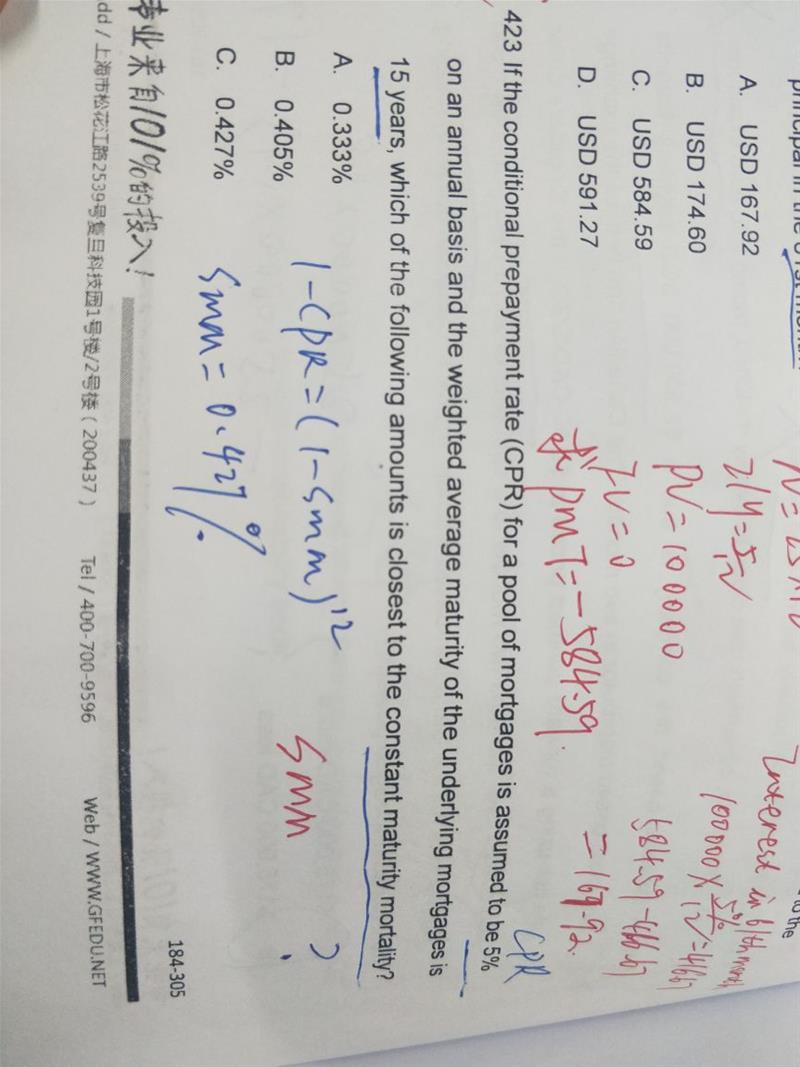 A. USD 167.92
B. USD 174.60
C. USD 584.59
D. USD 591.27
I/Y = 5/12
PV = 100000
FV = 0
求 PMT = -584.59.
Interest in 61th month
584.59-416.67
= 167.92.
423 If the conditional prepayment rate (CPR) for a pool of mortgages is assumed to be 5%
CPR
on an annual basis and the weighted average maturity of the underlying mortgages is
15 years, which of the following amounts is closest to the constant maturity mortality?
A. 0.333%
B. 0.405%
C. 0.427%
1-CPR = (1-SMM)^12
SMM = 0.427%.
SMM ?
专业来自101%的投入!
184-305
dd / 上海市松花江路2539号复旦科技园1号楼/2号楼（200437） Tel / 400-700-9596 Web / WWW.GFEDU.NET